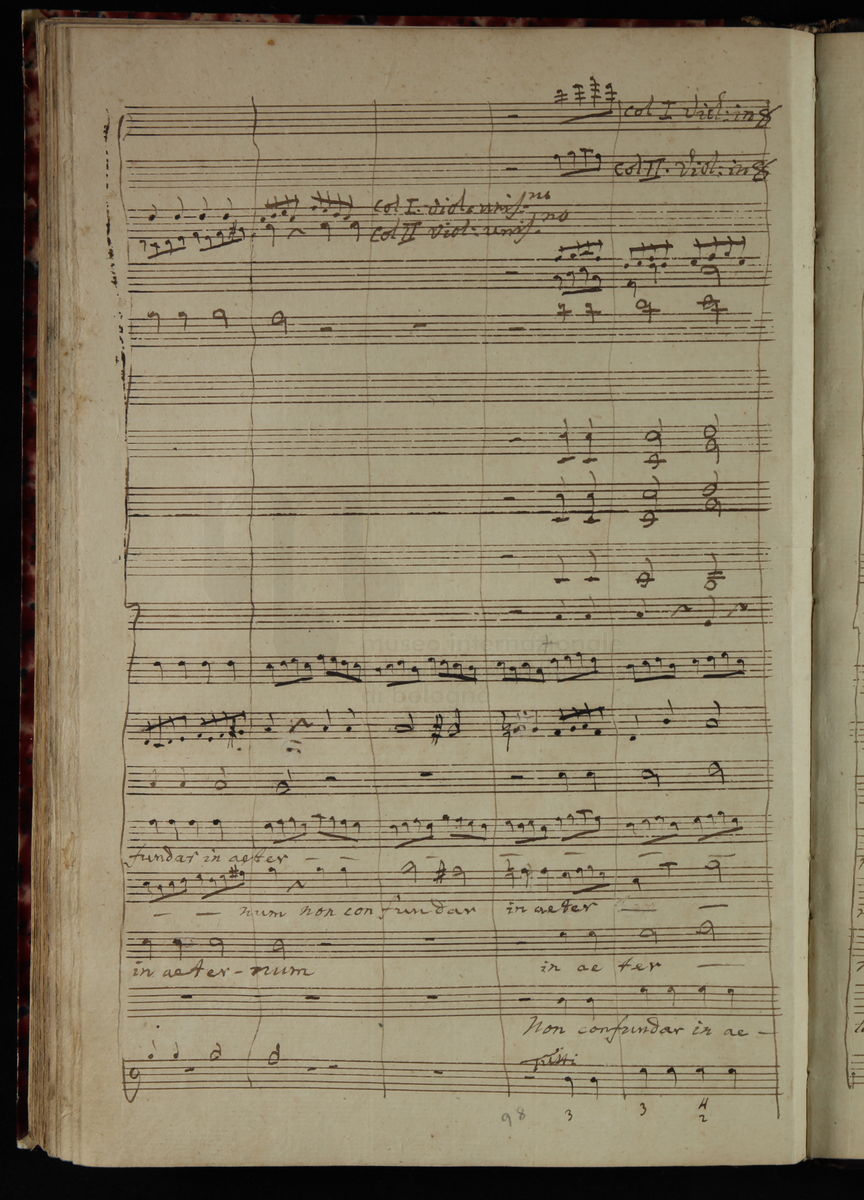 col I Viol: in 8
col II. Viol: in 8
col I. viol: unis.no
col II viol: unis.no
museo internazionale
di bologna
fundar in aeter - -
- - num non con fundar in aeter - -
in aeter - num in ae ter -
Non confundar in ae -
Tutti
98 3 3 4
2